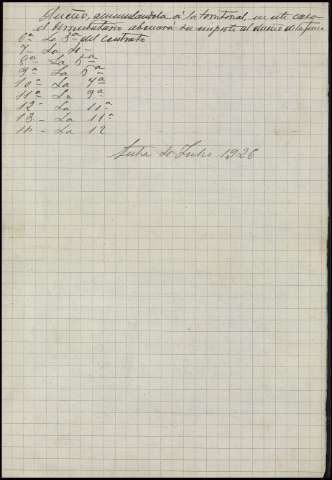 dueño, acumulandola á la territorial, en este caso
el arrendatario abonará su importe al dueño de la finca
6ª La 3ª del contrato
7ª La 4ª
8ª La 5ª
9ª La 6ª
10ª La 7ª
11ª La 9ª
12ª La 11ª
13 - La 11ª
14 - La 12
Julio 1926